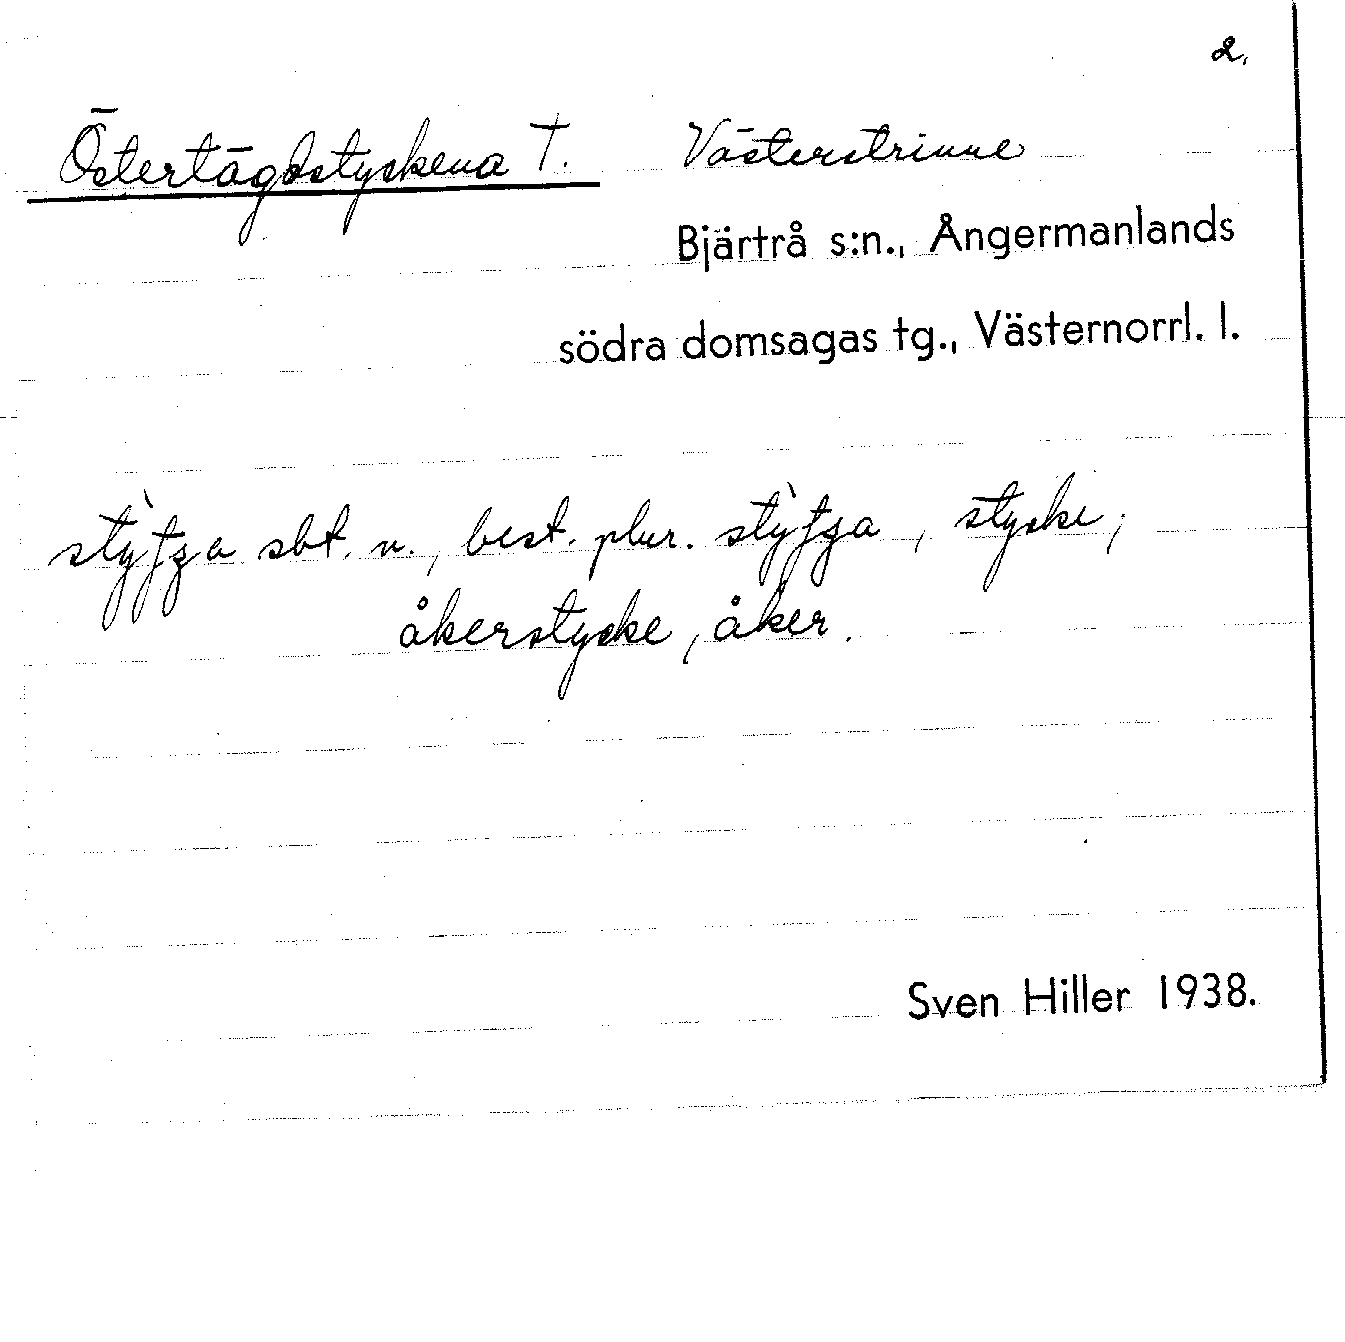 2.
Östertägdstyckena T. Västerstrinne
Bjärtrå s:n., Ångermanlands
södra domsagas tg., Västernorrl. l.
sbt. n., best. plur. , stycke,
åkerstycke, åker.
Sven Hiller 1938.